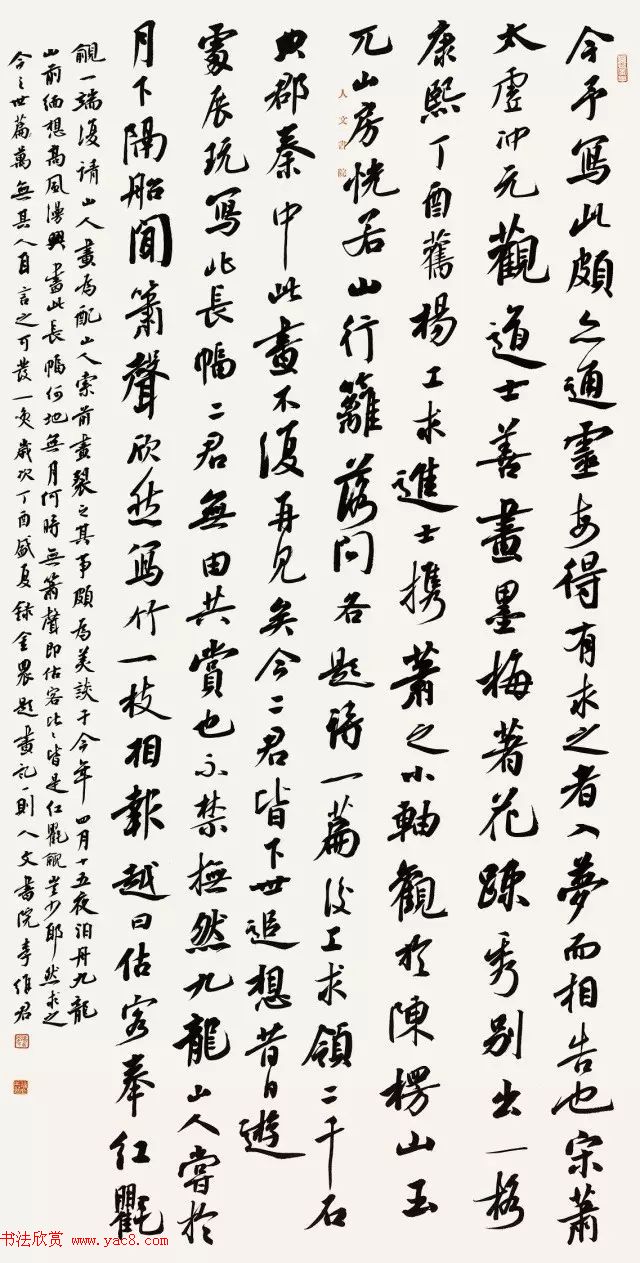 今予寫此頗亦通靈安得有求之者入夢而相告也宋蕭
太虛沖元觀道士善畫墨梅著花疎秀別出一格
康熙丁酉舊楊工求進士携蕭之小軸觀於陳楞山玉
兀山房恍若山行籬落间各題詩一篇後工求領二千石
典郡秦中此畫不復再見矣今二君皆下世追想昔日遊
處展玩寫此長幅二君無由共賞也不禁撫然九龍山人嘗於
月下隔船聞簫聲欣然寫竹一枝相報越日估客奉紅氍
毹一端復請山人畫為配山人索前畫裂之其事頗為美談于今年四月十五夜泊舟九龍
山前緬想高風漫興畫此長幅何地無月何時無簫聲即估客比比皆是紅氍毹豈少耶然求之
今之世篇萬無其人自言之可發一笑歲次丁酉盛夏錄金農題畫記一則人文書院李維君
人文書院
书法欣赏 www.yac8.com